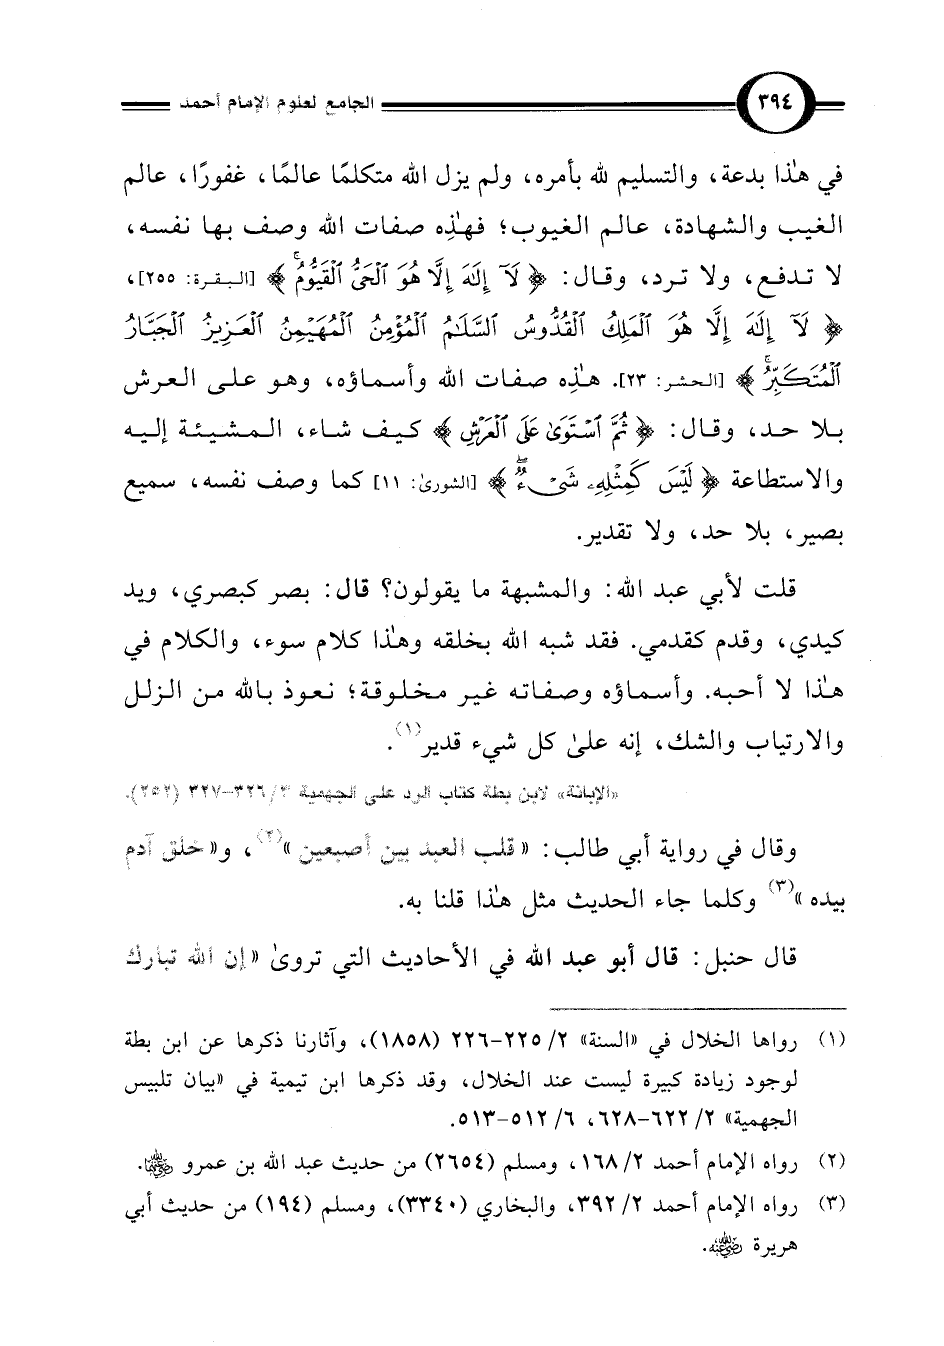 ٣٩٤ الجامع لعلوم الإمام أحمد
في هذا بدعة، والتسليم لله بأمره، ولم يزل الله متكلمًا عالمًا، غفورًا، عالم
الغيب والشهادة، عالم الغيوب؛ فهذِه صفات الله وصف بها نفسه،
لا تدفع، ولا ترد، وقال: ﴿لَآ إِلَٰهَ إِلَّا هُوَ ٱلْحَىُّ ٱلْقَيُّومُ ۚ﴾ [البقرة: ٢٥٥]،
﴿لَآ إِلَٰهَ إِلَّا هُوَ ٱلْمَلِكُ ٱلْقُدُّوسُ ٱلسَّلَٰمُ ٱلْمُؤْمِنُ ٱلْمُهَيْمِنُ ٱلْعَزِيزُ ٱلْجَبَّارُ
ٱلْمُتَكَبِّرُ ۚ﴾ [الحشر: ٢٣]. هذِه صفات الله وأسماؤه، وهو على العرش
بلا حد، وقال: ﴿ثُمَّ ٱسْتَوَىٰ عَلَى ٱلْعَرْشِ﴾ كيف شاء، المشيئة إليه
والاستطاعة ﴿لَيْسَ كَمِثْلِهِۦ شَىْءٌ ۖ﴾ [الشورىٰ: ١١] كما وصف نفسه، سميع
بصير، بلا حد، ولا تقدير.
قلت لأبي عبد الله: والمشبهة ما يقولون؟ قال: بصر كبصري، ويد
كيدي، وقدم كقدمي. فقد شبه الله بخلقه وهذا كلام سوء، والكلام في
هذا لا أحبه. وأسماؤه وصفاته غير مخلوقة؛ نعوذ بالله من الزلل
والارتياب والشك، إنه علىٰ كل شيء قدير(١).
«الإبانة» لابن بطة كتاب الرد على الجهمية ٣/ ٣٢٦-٣٢٧ (٢٥٢).
وقال في رواية أبي طالب: «قلب العبد بين أصبعين»(٢)، و«خلق آدم
بيده»(٣) وكلما جاء الحديث مثل هذا قلنا به.
قال حنبل: قال أبو عبد الله في الأحاديث التي تروىٰ «إن الله تبارك
(١) رواها الخلال في «السنة» ٢/ ٢٢٥-٢٢٦ (١٨٥٨)، وآثارنا ذكرها عن ابن بطة
لوجود زيادة كبيرة ليست عند الخلال، وقد ذكرها ابن تيمية في «بيان تلبيس
الجهمية» ٢/ ٦٢٢-٦٢٨، ٦/ ٥١٢-٥١٣.
(٢) رواه الإمام أحمد ٢/ ١٦٨، ومسلم (٢٦٥٤) من حديث عبد الله بن عمرو رضي الله عنهما.
(٣) رواه الإمام أحمد ٢/ ٣٩٢، والبخاري (٣٣٤٠)، ومسلم (١٩٤) من حديث أبي
هريرة رضي الله عنه.